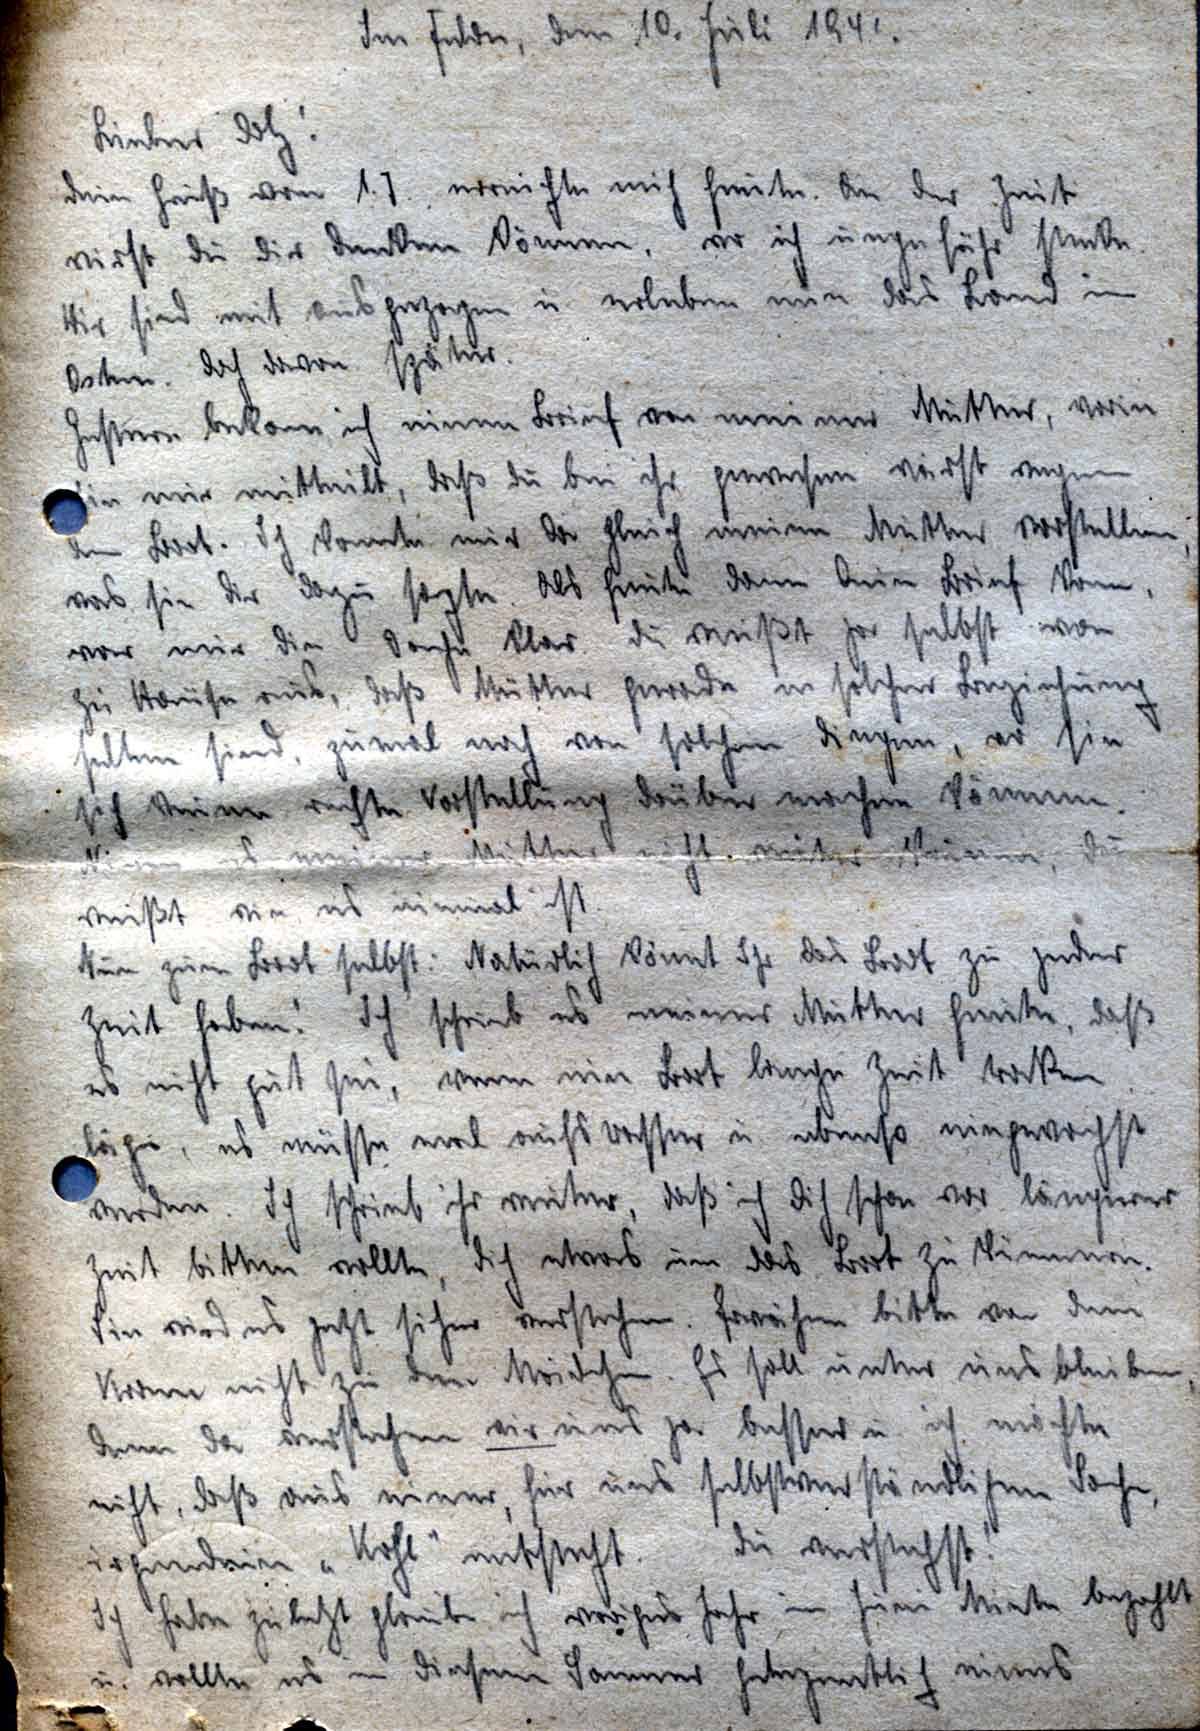 Im Felde, den 10. Juli 1941.
Lieber Dolz!
Dein Gruß vom 1.7. erreichte mich heute. An der Zeit
wirst du dir denken können, wo ich ungefähr stecke.
Wir sind mit ausgezogen u. erleben nun das Land im
Osten. Doch davon später.
Gestern bekam ich einen Brief von meiner Mutter, worin
sie mir mitteilt, daß du bei ihr gewesen wärst wegen
dem Boot. Ich konnte mir da gleich meine Mutter vorstellen,
was sie dir dazu sagte. Als heute dann Dein Brief kam,
war mir die Sache klar. Du weißt ja selbst von
zu Hause aus, daß Mütter gerade in solcher Beziehung
selten sind, zumal noch von solchen Dingen, wo sie
sich keine rechte Vorstellung drüber machen können.
Nimm es meiner Mutter nicht weiter krumm, du
weißt wie es einmal ist.
Nun zum Boot selbst: Natürlich könnt Ihr das Boot zu jeder
Zeit haben! Ich schrieb es meiner Mutter heute, daß
es nicht gut sei, wenn ein Boot lange Zeit trocken
läge, es müsse mal aufs Wasser u. ebenso eingewachst
werden. Ich schrieb ihr weiter, daß ich dich schon vor längerer
Zeit bitten wollte, dich etwas um das Boot zu kümmern.
Sie wird es jetzt sicher verstehen. Erwähne bitte von dem
Kram nicht zu den Mädchen. Es soll unter uns bleiben,
denn da verstehen wir uns ja besser u. ich möchte
nicht, daß aus einer, für uns selbstverständlichen Sache,
irgendein „Kohl" entsteht. Du verstehst!
Ich habe zuletzt glaube ich voriges Jahr im Juni Miete bezahlt
u. wollte es in diesem Sommer gelegentlich eines